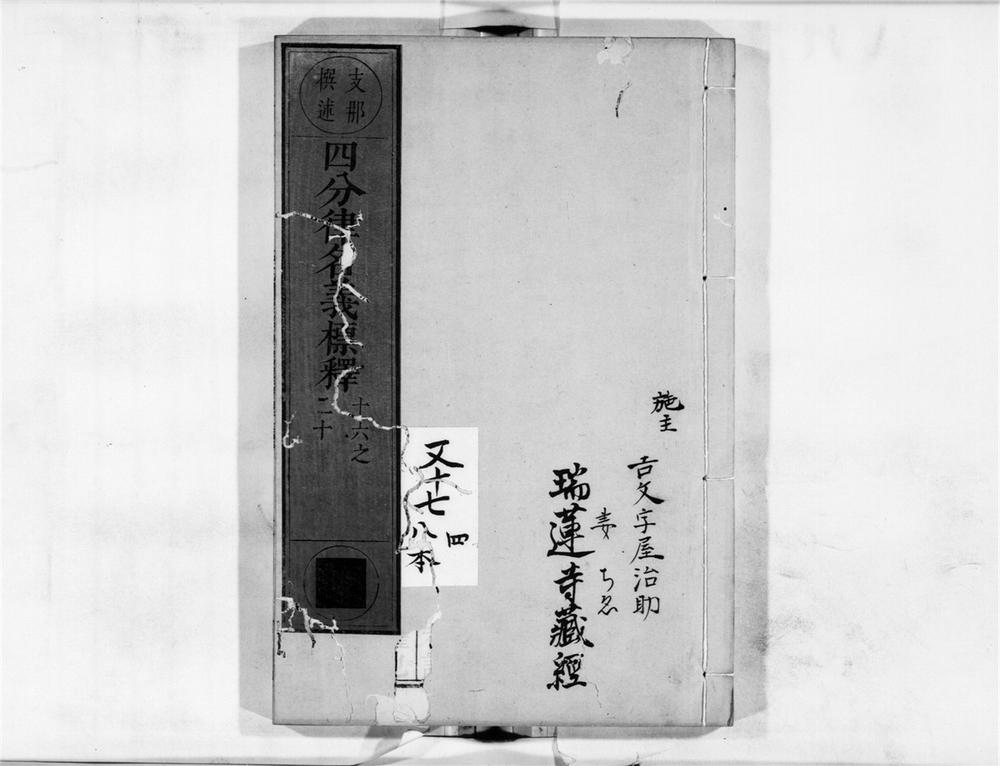 施主
吉文字屋治助
妻
ちゑ
瑞蓮寺藏經
支那
撰述
四分律名義標釋
十六之
二十
又十七八本
四